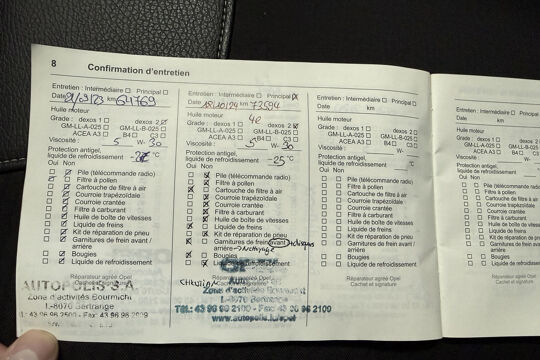 8 Confirmation d'entretien
Entretien : Intermédiaire ☐ Principal ☐
Date 21/09/23 km 64769
Huile moteur
Grade : dexos 1 ☐ dexos 2 ☑
GM-LL-A-025 ☐ GM-LL-B-025 ☐
ACEA A3 ☐ B4 ☐ C3 ☐
Viscosité : 5 W- 30
Protection antigel,
liquide de refroidissement °C
Oui Non
Pile (télécommande radio)
Filtre à pollen
Cartouche de filtre à air
Courroie trapézoïdale
Courroie crantée
Filtre à carburant
Huile de boîte de vitesses
Liquide de freins
Kit de réparation de pneu
Garnitures de frein avant /
arrière
Bougies
Liquide de refroidissement
Réparateur agréé Opel
Cachet et signature
AUTOPOLIS S.A.
Zone d'activités Bourmicht
L-8070 Bertrange
Entretien : Intermédiaire ☐ Principal ☒
Date 18/10/24 km 73594
Huile moteur
Grade : dexos 1 ☐ dexos 2 ☒
GM-LL-A-025 ☐ GM-LL-B-025 ☐
ACEA A3 ☐ B4 ☐ C3 ☐
Viscosité : 5 W- 30
Protection antigel,
liquide de refroidissement -25 °C
Oui Non
Pile (télécommande radio)
Filtre à pollen
Cartouche de filtre à air
Courroie trapézoïdale
Courroie crantée
Filtre à carburant
Huile de boîte de vitesses
Liquide de freins
Kit de réparation de pneu
Garnitures de frein avant
arrière Nettoyage
Bougies
Liquide de refroidissement
Réparateur agréé Opel
Zone d'activités Bourmicht
L-8070 Bertrange
TEL: 43 96 96 2100 - Fax: 43 96 96 2100
www.autopolis.lu/opel
Entretien : Intermédiaire ☐ Principal ☐
Date km
Huile moteur
Grade : dexos 1 ☐ dexos 2 ☐
GM-LL-A-025 ☐ GM-LL-B-025 ☐
ACEA A3 ☐ B4 ☐ C3 ☐
Viscosité : W-
Protection antigel,
liquide de refroidissement °C
Oui Non
Pile (télécommande radio)
Filtre à pollen
Cartouche de filtre à air
Courroie trapézoïdale
Courroie crantée
Filtre à carburant
Huile de boîte de vitesses
Liquide de freins
Kit de réparation de pneu
Garnitures de frein avant /
arrière
Bougies
Liquide de refroidissement
Réparateur agréé Opel
Cachet et signature
Entretien : Intermédiaire
Date km
Huile moteur
Grade : dexos 1 ☐
GM-LL-A-025 ☐
ACEA A3 ☐
Viscosité :
Protection antigel,
liquide de refroidissement
Oui Non
Pile (télécommande radio)
Filtre à pollen
Cartouche de filtre à
Courroie trapézoïdale
Courroie crantée
Filtre à carburant
Huile de boîte de vitesses
Liquide de freins
Kit de réparation de pneu
Garnitures de frein
arrière
Bougies
Liquide de
Réparateur agréé
Cachet et